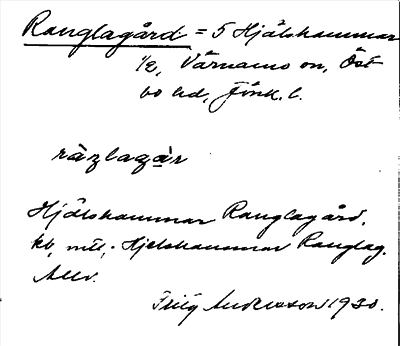 Ranglagård = 5 Hjälshammar
1/2, Värnamo sn, Öst
bo hd, Jönk. l.
ràzlagàr
Hjälshammar Ranglagård,
kb, mtl; Hjelshammar Ranglag.
Allv.
Frig Andersson 1930.